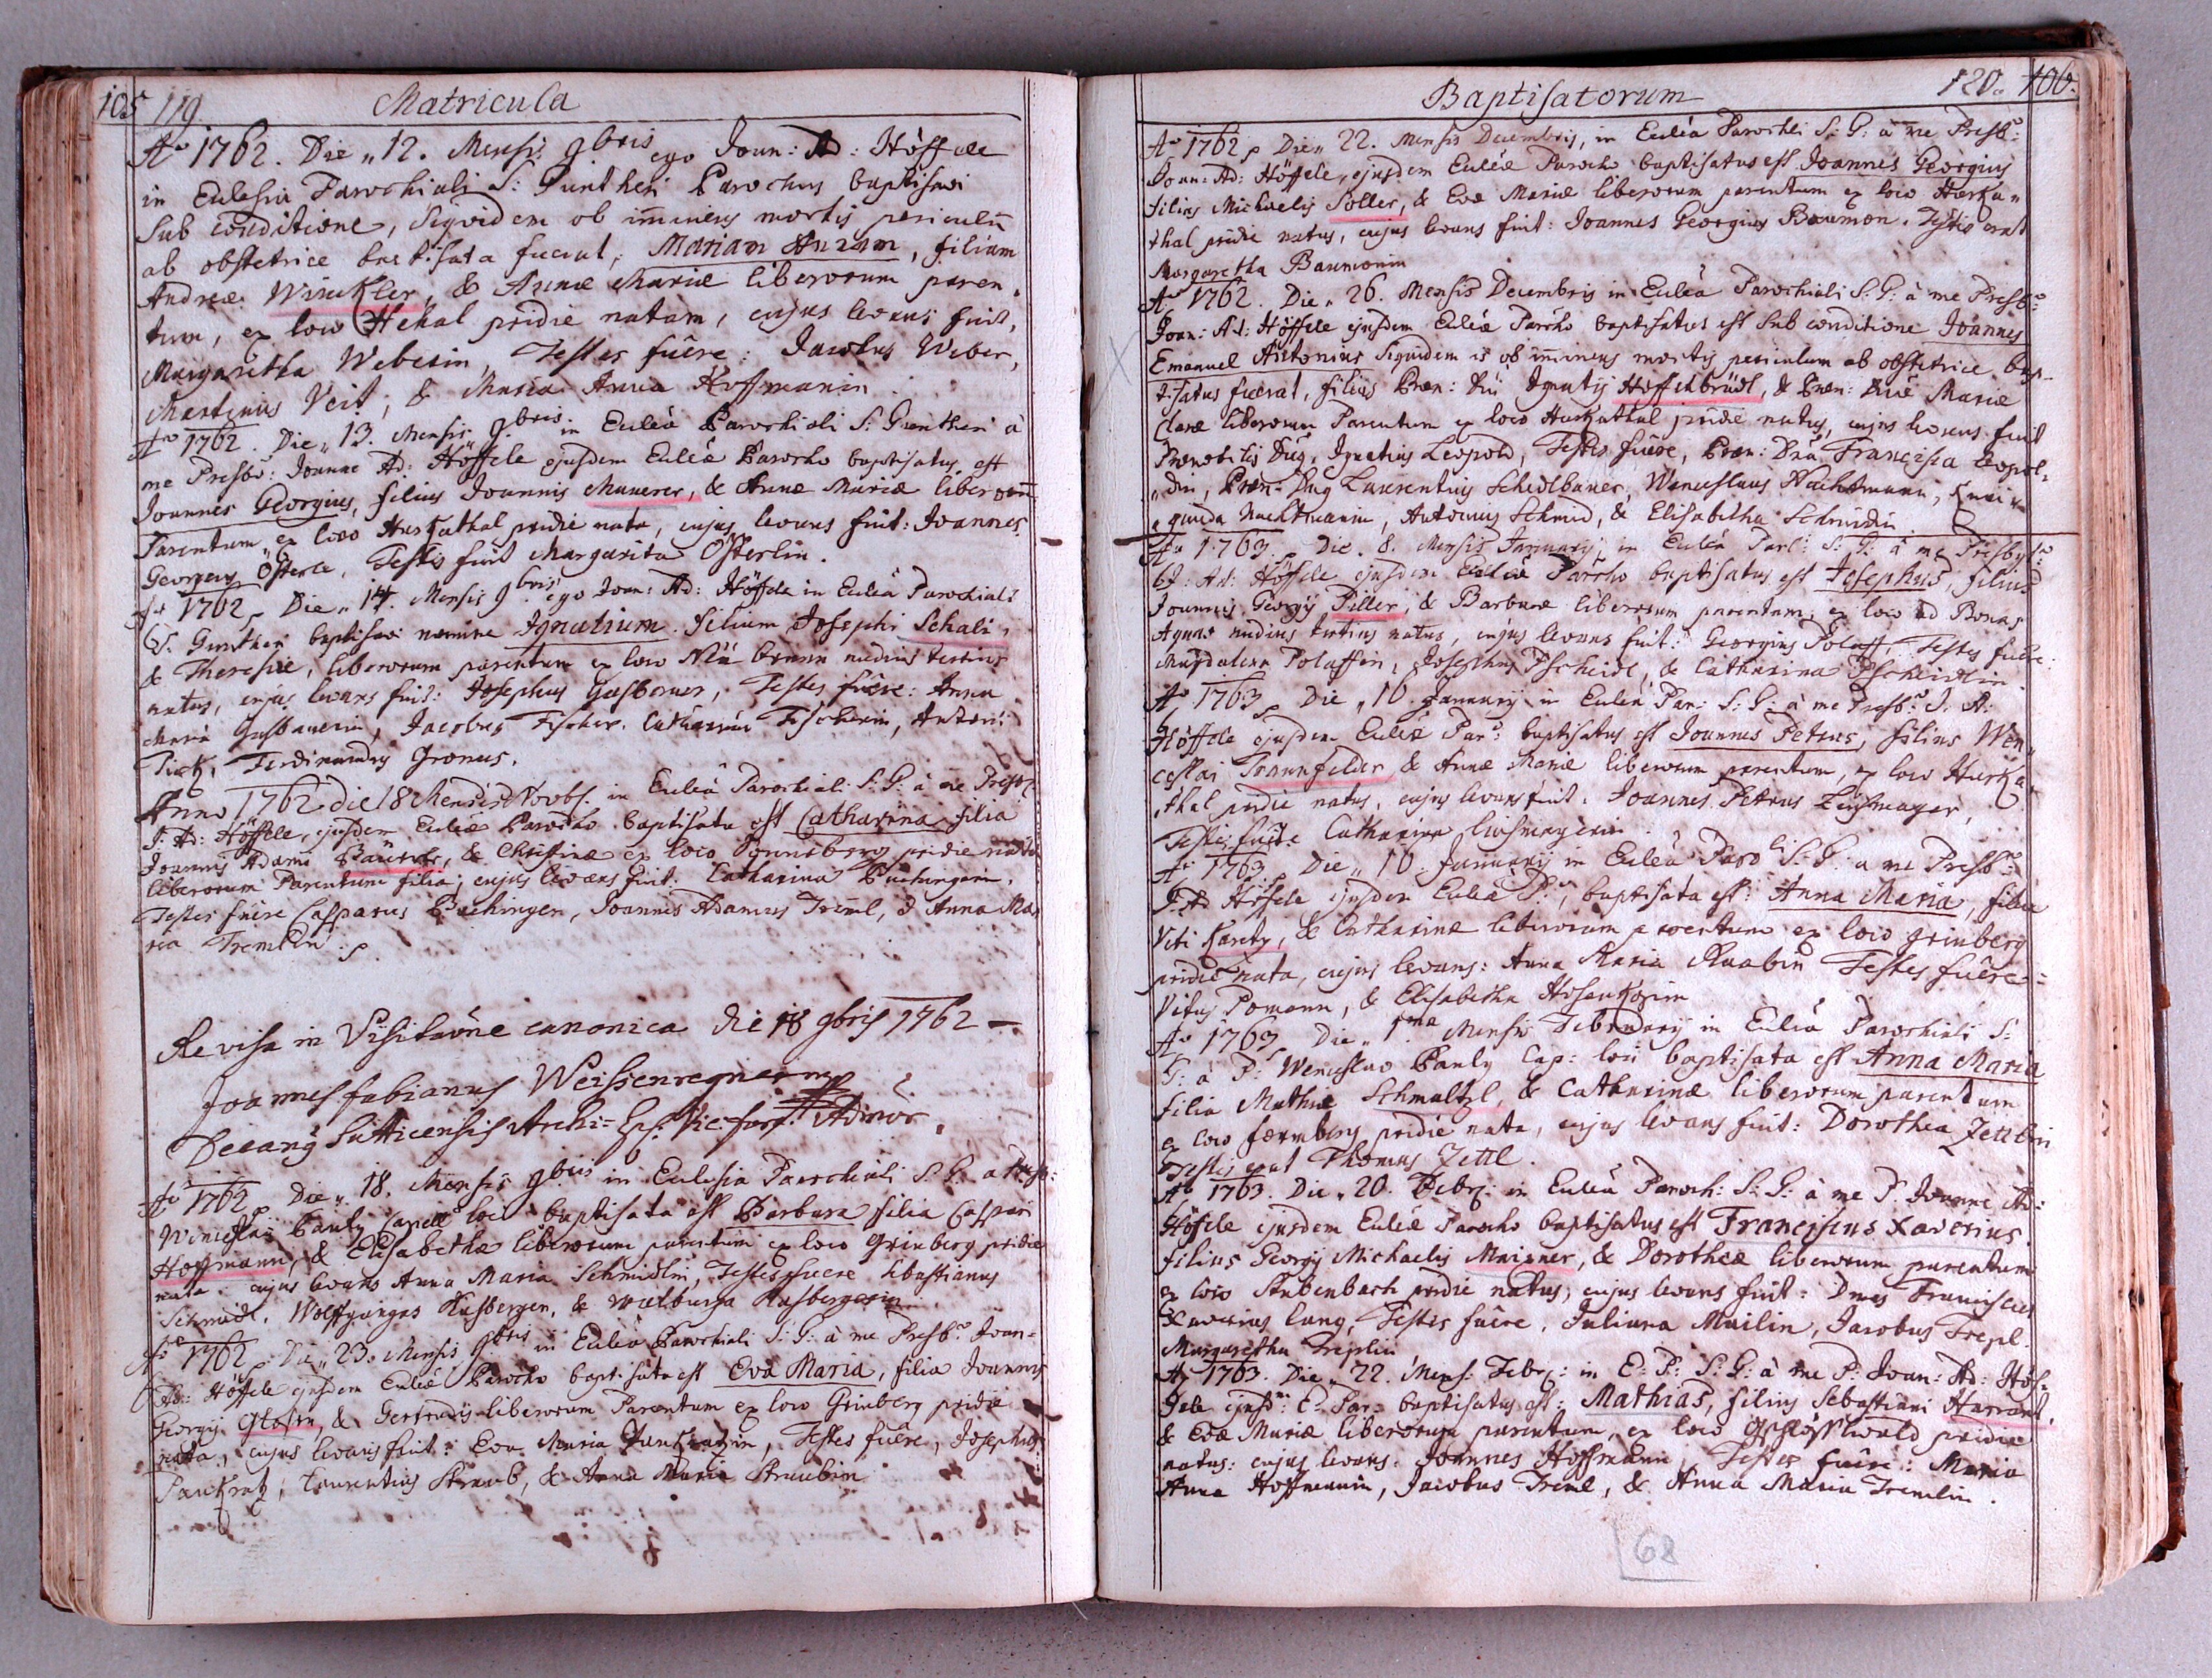 105 119. Matricula
Aō 1762. Die „ 12. Mensis 9bris ego Joan: Ad: Höffele
in Eclesia Parochiali S: Guntheri Parochus baptisavi
sub conditione, siquidem ob im̄inens mortis periculū
ab obstetrice baptisata fuerat, Mariam Annam, filiam
Andreæ Winckler, & Annæ Mariæ liberorum paren„
tum, ex loco Hekal pridie natam, cujus levans fuit,
Margaretha Weberin, Testes fuêre: Jacobus Weber,
Martinus Veit, & Maria Anna Hoffmanin
Aō 1762. Die „ 13. Mensis 9bris in Eccleâ Parochiali S: Guntheri à
me Presbō: Joanne Ad: Höffele ejusdem Eccleæ Parocho baptisatus est
Joannes Georgius, filius Joannis Maurer, & Annæ Mariæ liberorū
Parentum ex loco Hurkathal pridie nata, cujus levans fuit: Joannes
Georgius Österle, Testis fuit Margarita Österlin.
Aō 1762 Die „ 14. Mensis 9bris ego Joan: Ad: Höffele in Eccleâ Parochiali
S: Guntheri baptisavi nomine Ignatium filium Josephi Schali,
& Theresiæ, liberorum parentum ex loco brunn nudius tertius
natus, cujus levans fuit: Josephus Gasbauer, Testes fuêre: Anna
Maria Gasbauerin, Jacobus Fischer, Catharina Fischerin, Antoni
Pick, Ferdinandus Gronus.
Anno 1762 die 18 Mensis Novbs. in Eccleâ Parochiali S: G: à me Presb:
J: Ad: Höffele, ejusdem Eccleæ Parocho baptisata est Catharina filia
Joannis Adami & Christinæ ex loco Sonneberg pridie nata
liberorum Parentum filia; cujus levans fuit: Catharina Buchingerin.
Testes fuêre Casparus Buchinger, Joannes Adamus Treml, & Anna Ma„
ria Tremlin.
Revisa in Visitaōne canonica die 18 9bris 1762 —
Joannes fabianus Weissenregner
Decanꝰ Sutticensis Archi-Ep: Vic: for:
Aō 1762 Die „ 18. Mensis 9bris in Eclesia Parochiali S: G: a Presb:
Wenceslao Pauly Capell loci baptisata est Barbara filia Caspari
Hoffmann, & Elisabethæ liberorum parentum ex loco Grinberg pridie
nata, cujus levans Anna Maria Schmidlin, Testes fuere Sebastianus
Schmidl, Wolffgangus Kasberger, & Walburga Kasbergerin
Aō 1762 Die „ 23. Mensis 9bris in Eccleâ Parochiali S: G: à me Presbō: Joan=
Ad: Höffele ejusdem Eccleæ Parocho baptisata est Eva Maria, filia Joannis
Georgij & Gertrudis liberorum Parentum ex loco Grinberg pridie
nata, cujus levans fuit: Eva Maria Pankratzin, Testes fuêre, Josephus
Pankratz, Laurentius Straub, & Anna Maria Straubin
Baptisatorum 120. 106.
Aō 1762 Die „ 22. Mensis Decembris, in Eccleâ Parochli S: G: à me Presbō:
Joan: Ad: Höffele, ejusdem Eccleæ Parocho baptisatus est Joannes Georgius
filius Michaelis Soller, & Evæ Mariæ liberorum parentum ex loco Hurka„
thal pridie natus, cujus levans fuit: Joannes Georgius Bauman. Testis erat
Margaretha Baumanin
Aō 1762. Die „ 26. Mensis Decembris in Eccleâ Parochiali S: G: à me Presbō:
Joan: Ad: Höffele ejusdem Eccleæ Parocho baptisatus est sub conditione Joannes
Emanuel Antonius siquidem is ob im̄inens mortis periculum ab obstetrice bap„
tisatus fuerat, filius Præn: Dn̄i Ignatij Haffenbrädl, & Præn: Dn̄æ Mariæ
Claræ liberorum Parentum ex loco Hurkathal pridie natus, cujus levans fuit
Prænobilis Dn̄s, Ignatius Leopold, Testes fuêre, Præn: Dn̄a Francisca Leopol„
din, Præn: Dn̄s Laurentius Schedlbauer, Wenceslaus Wachtmann,
gunda Wachtmanin, Antonius Schmid, & Elisabetha Schmidin
Aō 1763. Die. 8. Mensis Januarij, in Eccleâ Parl: S: G: à me Presbytō:
J: Ad: Höffele ejusdem Eccleæ Parocho baptisatus est Josephus, filius
Joannis Georgij Piller, & Barbaræ liberorum parentum, ex loco ad Bonas
Aquas nudius tertius natus, cujus levans fuit: Georgius Polaff, Testes fuêre:
Magdalena Polaffin, Josephus Pscheidl, & Catharina Pscheidlin.
Aō 1763 Die „ 10 Januarij in Eccleâ Par: S: G: à me Presbō: J: A:
Höffele ejusdem Eccleæ Parō: baptisatus est Joannes Petrus, filius Wen„
ceslai Traunfelder & Annæ Mariæ liberorum parentum, ex loco Hurka„
thal pridie natus, cujus levans fuit. Joannes Petrus Leismayer,
Testis fuit: Catharina Leismayerin.
Aō 1763. Die „ 10. Januarij in Eccleâ Paroli S: G: a me Presbō:
J: Ad Höfele ejusdem Eccleæ Pō: baptisata est: Anna Maria, filia
Viti & Catharinæ liberorum parentum ex loco Grinberg
pridie nata, cujus levans: Anna Maria Raabin Testes fuêre=
Vitus Pomann, & Elisabetha
Aō 1763 Die „ 1ma Mensis Februarij in Eccleâ Parochiali S:
G: à P: Wenceslao Pauly Cap: loci baptisata est Anna Maria
filia Mathiæ Schmaltzl, & Catharinæ liberorum parentum
ex loco pridie nata, cujus levans fuit: Dorothea Zettlin
Testis erat Thomas Zettl.
Aō 1763. Die „ 20. Febr: in Eccleâ Paroch: S: G: à me P. Joanne Ad:
Höfele ejusdem Eccleæ Parocho baptisatus est Franciscus Xaverius
filius Georgij Michaelis Maixner, & Dorotheæ liberorum parentum
ex loco Stubenbach pridie natus, cujus levans fuit: Dnus Franciscus
Xaverius Lang, Testes fuêre, Juliana Mailin, Jacobus Trepl.
Margaretha Treplin
Aō 1763. Die „ 22. Mens: Febr: in E: P: S: G: à me P: Joan: Ad: Höf„
fele ejusd: E: Par: baptisatus est: Mathias, filius Sebastiani Harrant,
& Evæ Mariæ liberorum parentum, ex loco Gschlösslwald pridie
natus: cujus levans: Joannes Hoffmann, Testes fuêre: Maria
Anna Hoffmanin, Jacobus Treml, & Anna Maria Tremlin.
68